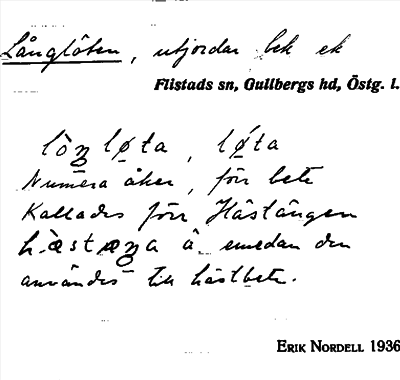 Långlöten, utjordar bek ek
Flistads sn, Gullbergs hd, Östg. l.
lòŋ lø̀ta, lǿta
Numera åker, förr bete
Kallades förr Hästängen
hæ̀stæŋa å emedan den
användes till hästbete.
ERIK NORDELL 1936